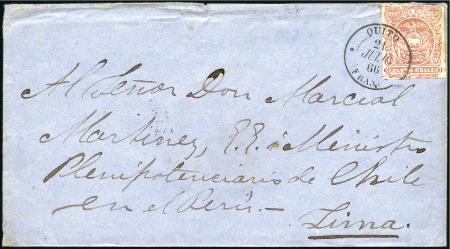 QUITO
21
JUL
66
FRAN
CUATRO REALES
Al Señor Don Marcial
Martinez, E. E. i Ministro
Plenipotenciario de Chile
en el Perú. —
Lima.